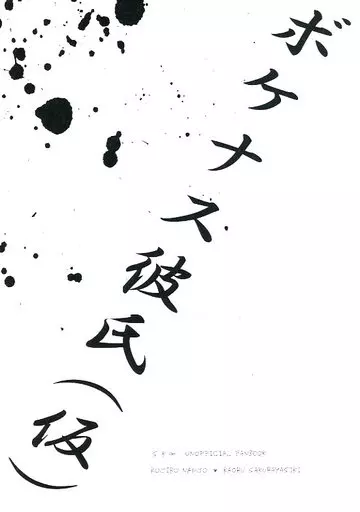 ボケナス彼氏(仮)
UNOFFICIAL FANBOOK
KOJIRO NANJO ♥ KAORU SAKURAYASIKI